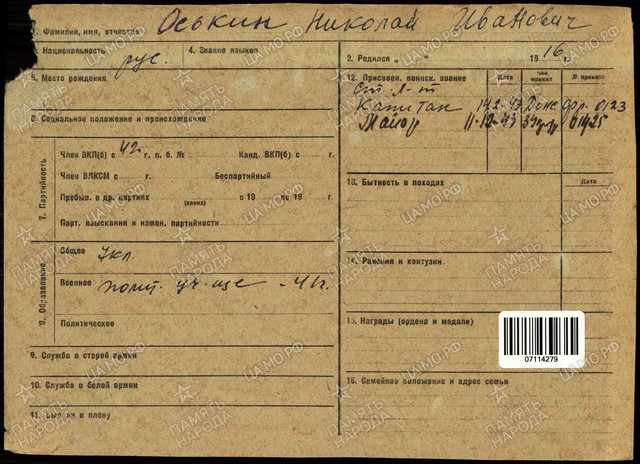 1. Фамилия, имя, отчество Оськин Николай Иванович
3. Национальность рус.
4. Знание языков
2. Родился „ “ 1916 г.
5. Место рождения
6. Социальное положение и происхождение
7. Партийность
Член ВКП(б) с 42 г. п. б. № Канд. ВКП(б) с г.
Член ВЛКСМ с г. Беспартийный
Пребыв. в др. партиях с 19 по 19 г.
(каких)
Парт. взыскания и измен. партийности
8. Образование
Общее 7 кл
Военное полит. уч-ще - 41 г.
Политическое
9. Служба в старой армии
10. Служба в белой армии
11. Был ли в плену
12. Присвоен. воинск. звание Дата Чей приказ № приказа
Ст. л-т
Капитан 14.2.43 Донс фр. 0123
Майор 11.12.43
13. Бытность в походах Дата
14. Ранения и контузии
15. Награды (ордена и медали)
07114279
16. Семейное положение и адрес семьи
ПАМЯТЬ НАРОДА
ЦАМО.РФ